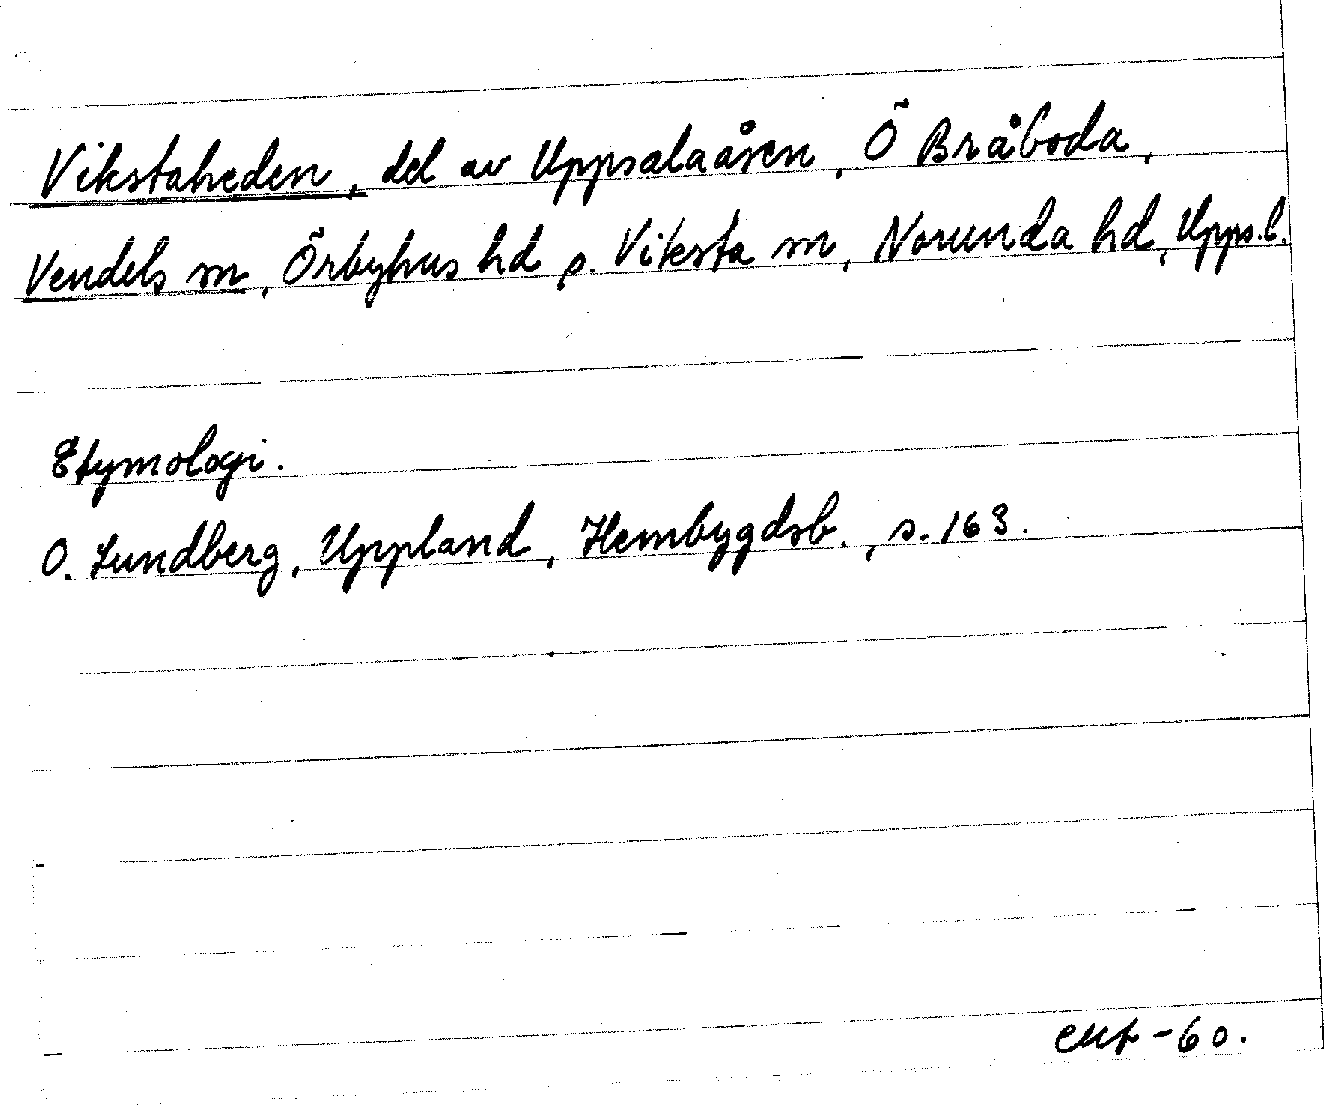 Vikstaheden, del av Uppsalaåsen, Ö Bråboda,
Vendels sn, Örbyhus hd o. Viksta sn, Norunda hd, Upps.l.
Etymologi.
O. Lundberg, Uppland, Hembygdsb., s. 163.
-60.